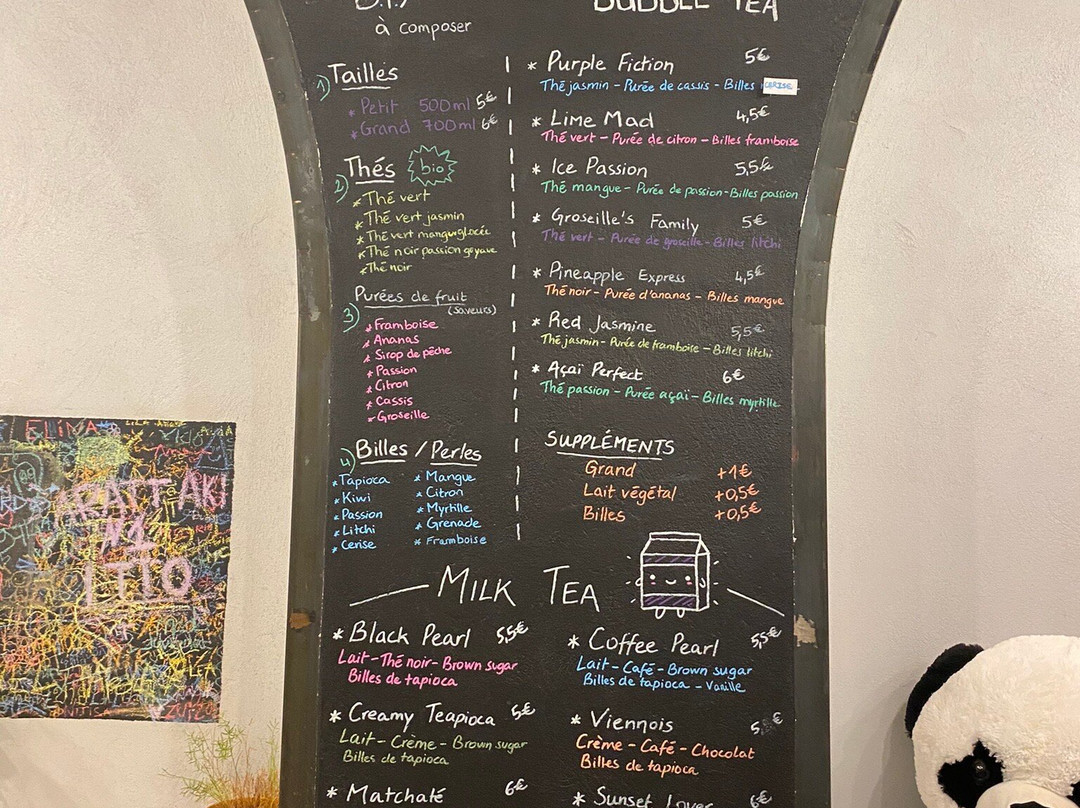 D.I.Y
à composer
1) Tailles
* Petit 500ml 5€
* Grand 700ml 6€
2) Thés bio
* Thé vert
* Thé vert jasmin
* Thé vert mangue glacée
* Thé noir passion goyave
* Thé noir
3) Purées de fruit
(saveurs)
* Framboise
* Ananas
* Sirop de pêche
* Passion
* Citron
* Cassis
* Groseille
4) Billes / Perles
* Tapioca
* Kiwi
* Passion
* Litchi
* Cerise
* Mangue
* Citron
* Myrtille
* Grenade
* Framboise
BUBBLE TEA
* Purple Fiction 5€
Thé jasmin - Purée de cassis - Billes CERISE
* Lime Mad 4,5€
Thé vert - Purée de citron - Billes framboise
* Ice Passion 5,5€
Thé mangue - Purée de passion - Billes passion
* Groseille's Family 5€
Thé vert - Purée de groseille - Billes litchi
* Pineapple Express 4,5€
Thé noir - Purée d'ananas - Billes mangue
* Red Jasmine 5,5€
Thé jasmin - Purée de framboise - Billes litchi
* Açaï Perfect 6€
Thé passion - Purée açaï - Billes myrtille
SUPPLÉMENTS
Grand +1€
Lait végétal +0,5€
Billes +0,5€
MILK TEA
* Black Pearl 5,5€
Lait - Thé noir - Brown sugar
Billes de tapioca
* Creamy Teapioca 5€
Lait - Crème - Brown sugar
Billes de tapioca
* Matchaté 6€
* Coffee Pearl 5,5€
Lait - Café - Brown sugar
Billes de tapioca - Vanille
* Viennois 5 €
Crème - Café - Chocolat
Billes de tapioca
* Sunset Lover 6€
ELIMA